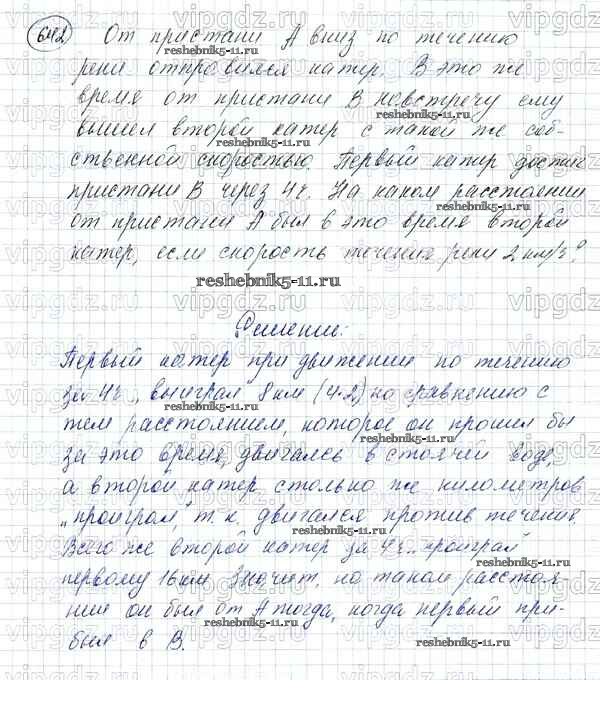 642 От пристани А вниз по течению
реки отправился катер. В это же
время от пристани В навстречу ему
вышел второй катер с такой же соб-
ственной скоростью. Первый катер достиг
пристани В через 4 ч. На каком расстоянии
от пристани А был в это время второй
катер, если скорость течения реки 2 км/ч?
reshebnik5-11.ru
Решение:
Первый катер при движении по течению
за 4 ч „выиграл 8 км (4·2) по сравнению с
тем расстоянием, которое он прошел бы
за это время, двигаясь в стоячей воде,
а второй катер столько же километров
„проиграл", т.к. двигался против течения
Всего же второй катер за 4 ч „проиграл
первому 16 км Значит, на таком расстоя-
нии он был от А тогда, когда первый при-
был в В.
reshebnik5-11.ru